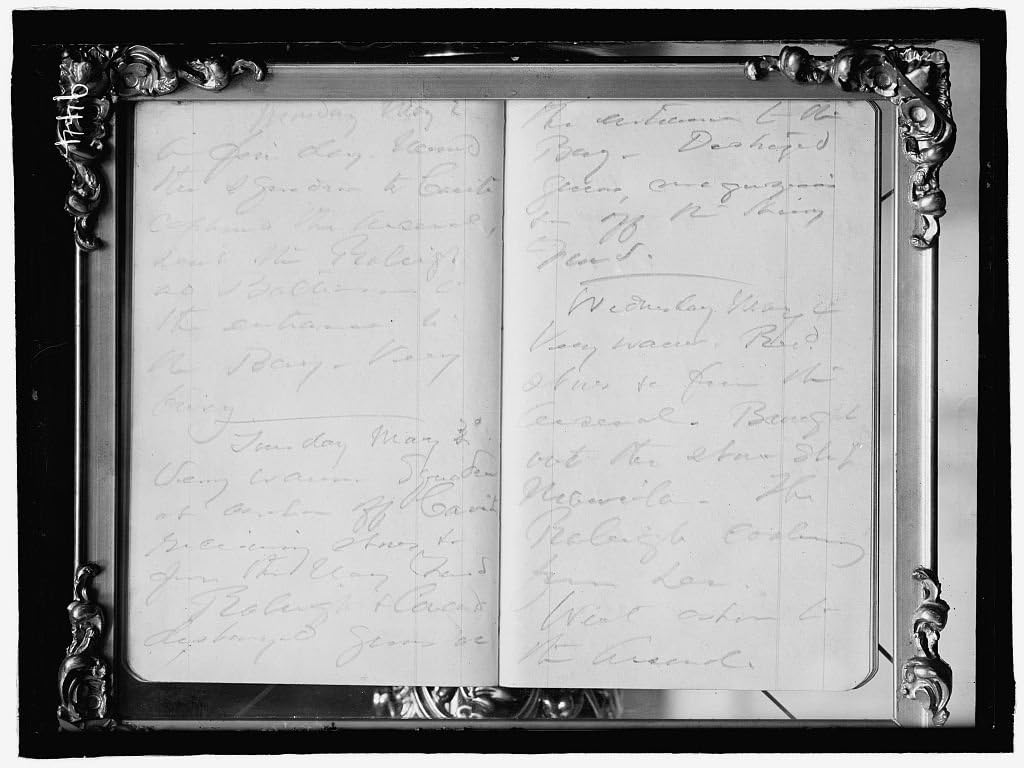 4744b
Monday May 2
A fair day. Moved
the squadron to Cavite
captured the Arsenal,
sent the Raleigh
and Baltimore to
the entrance to
the Bay. Very
busy
Tuesday May 3
Very warm. Squadron
at anchor off Cavite
receiving stores &c
from the Navy Yard
Raleigh &
destroyed guns at
the entrance to the
Bay. Destroyed
guns, magazines
&c off the
Wednesday May 4
Very warm. Recd
stores &c from the
arsenal. Brought
out the store ship
Manila. The
Raleigh coaling
from her.
Went ashore to
the Arsenal.